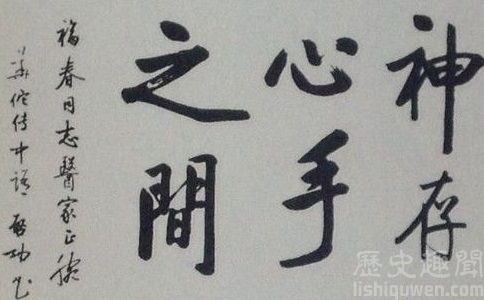 神存
心手
之間
福春同志醫家正腕
華佗传中語 啓功书
歷史趣聞
lishiquwen.com